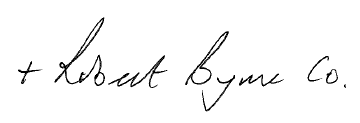 + Robert Byrne Co.